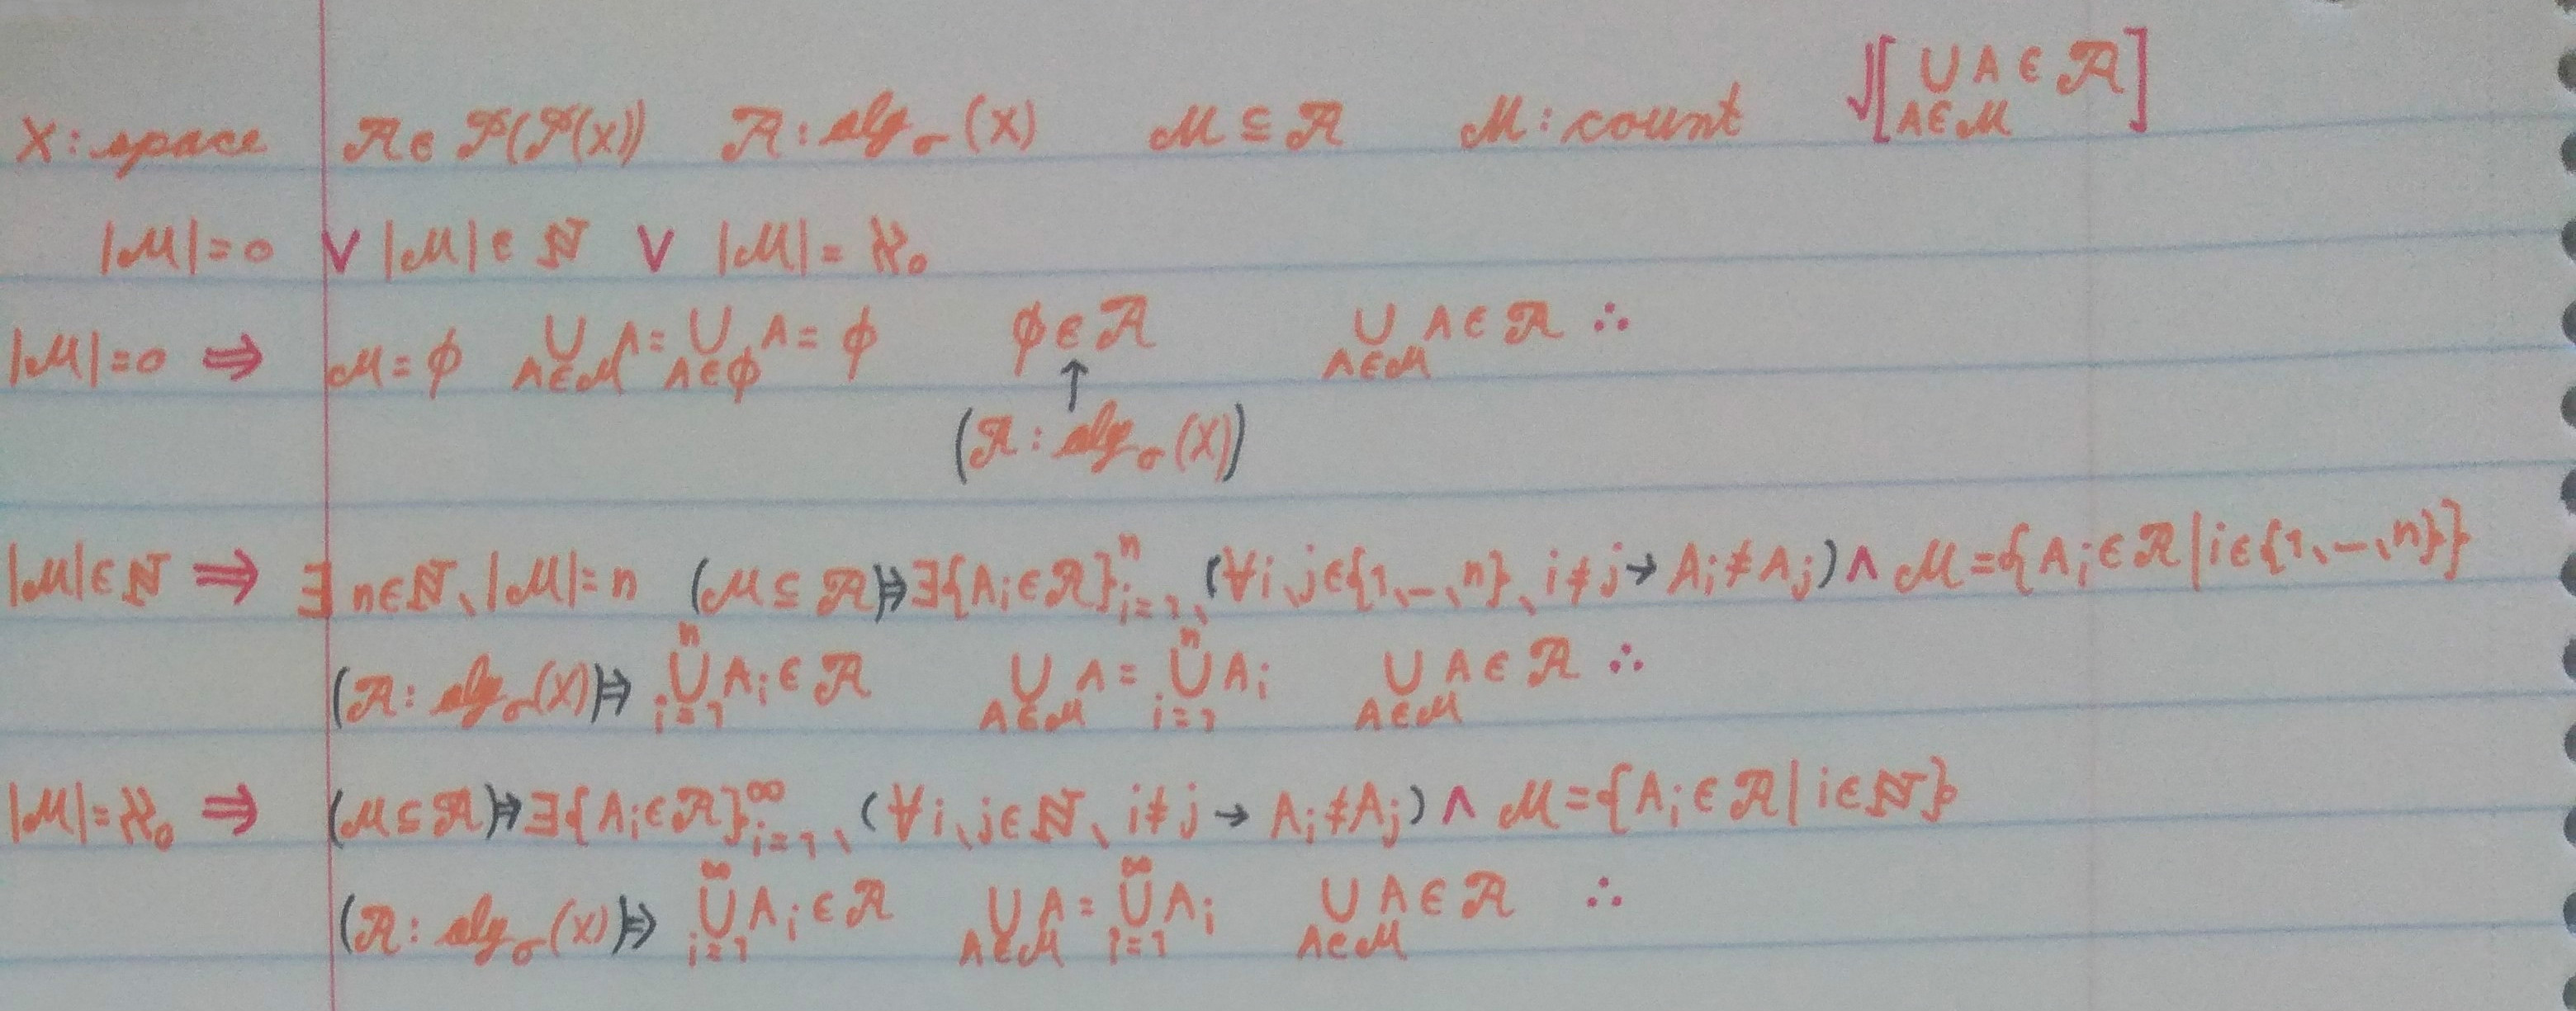 X : space 𝒜 ∈ 𝒫(𝒫(X)) 𝒜 : alg_σ(X) ℳ ⊆ 𝒜 ℳ : count √[⋃_{A∈ℳ} A ∈ 𝒜]
|ℳ| = 0 ∨ |ℳ| ∈ ℕ ∨ |ℳ| = ℵ₀
|ℳ| = 0 ⇒ ℳ = ϕ ⋃_{A∈ℳ} A = ⋃_{A∈ϕ} A = ϕ ϕ ∈ 𝒜 ⋃_{A∈ℳ} A ∈ 𝒜 ∴
↑
(𝒜 : alg_σ(X))
|ℳ| ∈ ℕ ⇒ ∃ n∈ℕ、|ℳ| = n (ℳ ⊆ 𝒜)⤇ ∃{A_i ∈ 𝒜}_{i=1}^{n}、(∀i、j∈{1、–、n}、i≠j → A_i ≠ A_j) ∧ ℳ = {A_i ∈ 𝒜 | i∈{1、–、n}}
(𝒜 : alg_σ(X))⤇ ⋃_{i=1}^{n} A_i ∈ 𝒜 ⋃_{A∈ℳ} A = ⋃_{i=1}^{n} A_i ⋃_{A∈ℳ} A ∈ 𝒜 ∴
|ℳ| = ℵ₀ ⇒ (ℳ ⊆ 𝒜)⤇ ∃{A_i ∈ 𝒜}_{i=1}^{∞}、(∀i、j∈ℕ、i≠j → A_i ≠ A_j) ∧ ℳ = {A_i ∈ 𝒜 | i∈ℕ}
(𝒜 : alg_σ(X))⤇ ⋃_{i=1}^{∞} A_i ∈ 𝒜 ⋃_{A∈ℳ} A = ⋃_{i=1}^{∞} A_i ⋃_{A∈ℳ} A ∈ 𝒜 ∴